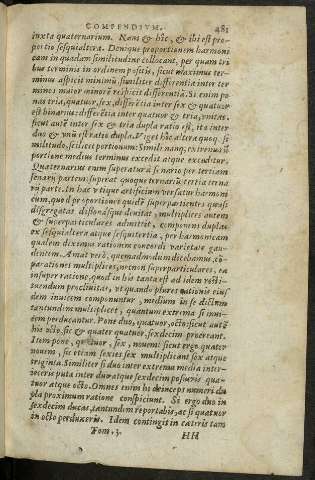 COMPENDIVM. 481
iuxta quaternarium. Nam & hîc, & ibi est pro-
portio sesquialtera. Denique proportionem harmoni
cam in quadam similitudine collocant, per quam tri
bus terminis in ordinem positis, sicut maximus ter-
minus aspicit minimũ similiter differentia inter ter
minos maior minorẽ respicit differentiã. Si enim po
nas tria, quatuor, sex, differẽtia inter sex & quatuor
est binarius: differẽtia inter quatuor & tria, vnitas.
sicut autẽ inter sex & tria dupla ratio est, ita inter
duo & vnũ est ratio dupla. Viget hîc altera quoq. si
militudo, scilicet portionum: Simili nanq, extremus
portione medius terminus excedit atque exceditur.
Quaternarius enim superatur à senario per tertiam
senarij partem: superat quoque ternariũ tertia terna
rij parte. In hac vtique artificium versatur harmoni
cum, quod proportiones quidẽ superpartientes quasi
disgregatas dissonasque deuitat, multiplices autem
& superparticulares admittit, componens duplam
ex sesquialtera atque sesquitertia, per harmonicam
qualem diximus rationem concordi varietate gau-
dentem. Amat verò, quemadmodum dicebamus, cõ-
parationes multiplices, necnon superparticulares, ea
insuper ratione, quod in his tanta est ad idem resti-
tuendum procliuitas, vt quando plures rationis eius
dem inuicem componuntur, medium in se dictum
tantundem multiplicet, quantum extrema si inui-
cem perducantur. Pone duo, quatuor, octo: sicut autẽ
bis octo, sic & quater quatuor sexdecim procreant.
Item pone, quatuor, sex, nouem: sicut ergo quater
nouem, sic etiam sexies sex multiplicant sex atque
triginta. Similiter si duo inter extrema media inter-
ieceris puta inter duo atque sexdecim posueris qua-
tuor atque octo. Omnes enim hi deinceps numeri du
pla proximum ratione conspiciunt. Si ergo duo in
sexdecim ducas, tantundem reportabis, ac si quatuor
in octo perduxeris. Idem contingit in cæteris tam
Tom. 3. HH